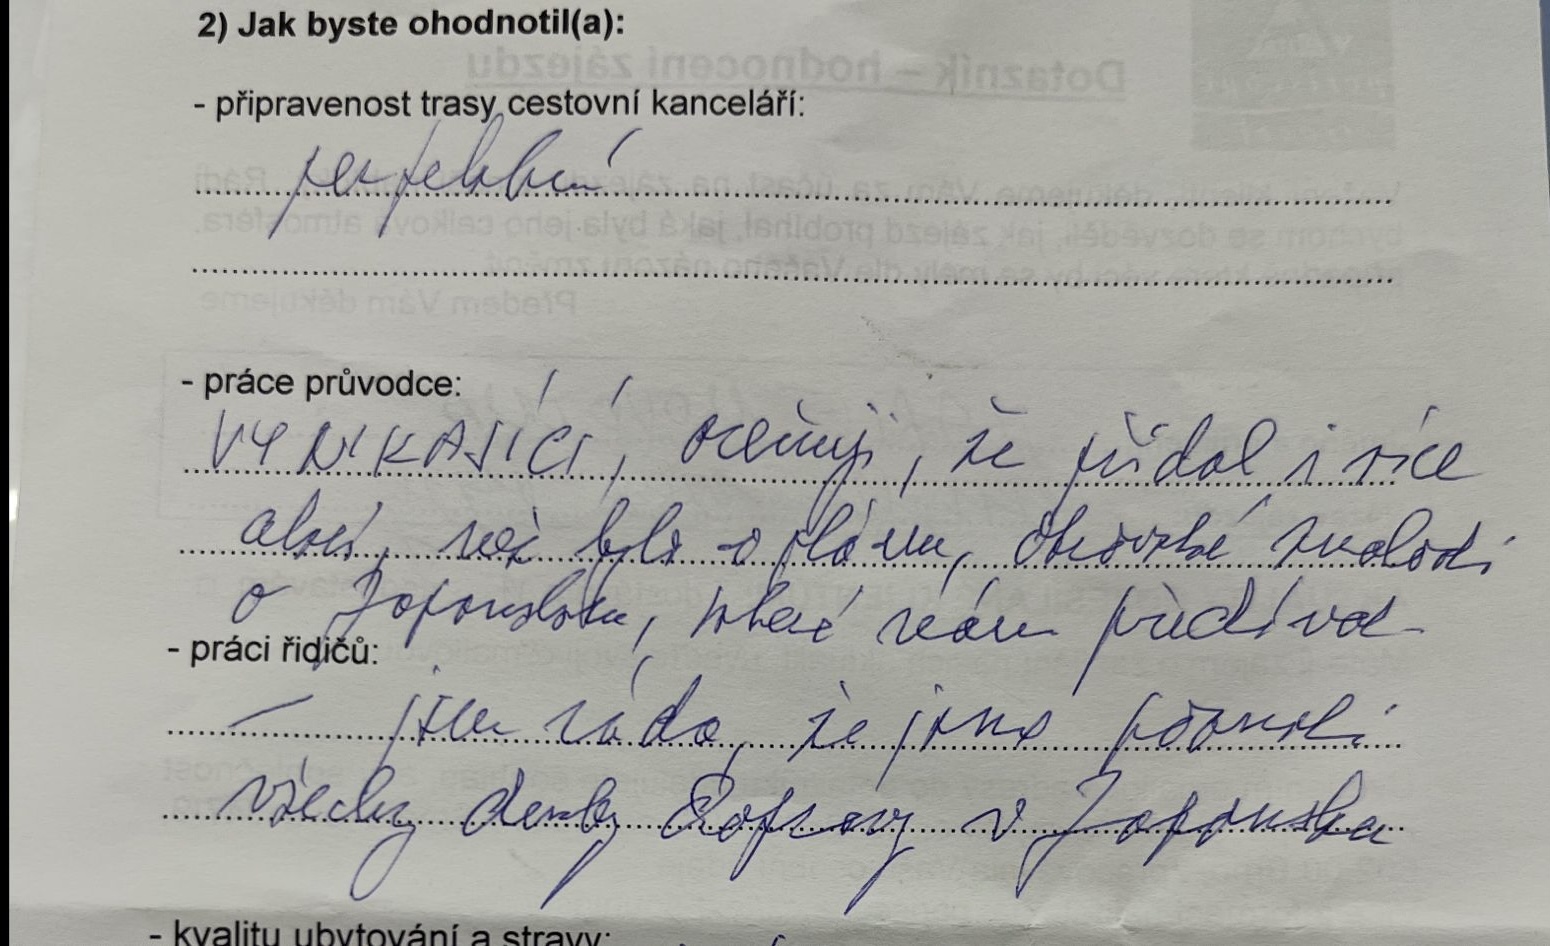 2) Jak byste ohodnotil(a):
- připravenost trasy cestovní kanceláří:
perfektní
- práce průvodce:
VYNIKAJÍCÍ, oceňuji, že přidal i více
akcí, než bylo v plánu, obrovské znalosti
o Japonsku, které nám předával
- práci řidičů:
- jsem ráda, že jsme poznali
všechny druhy dopravy v Japonsku
- kvalitu ubytování a stravy: